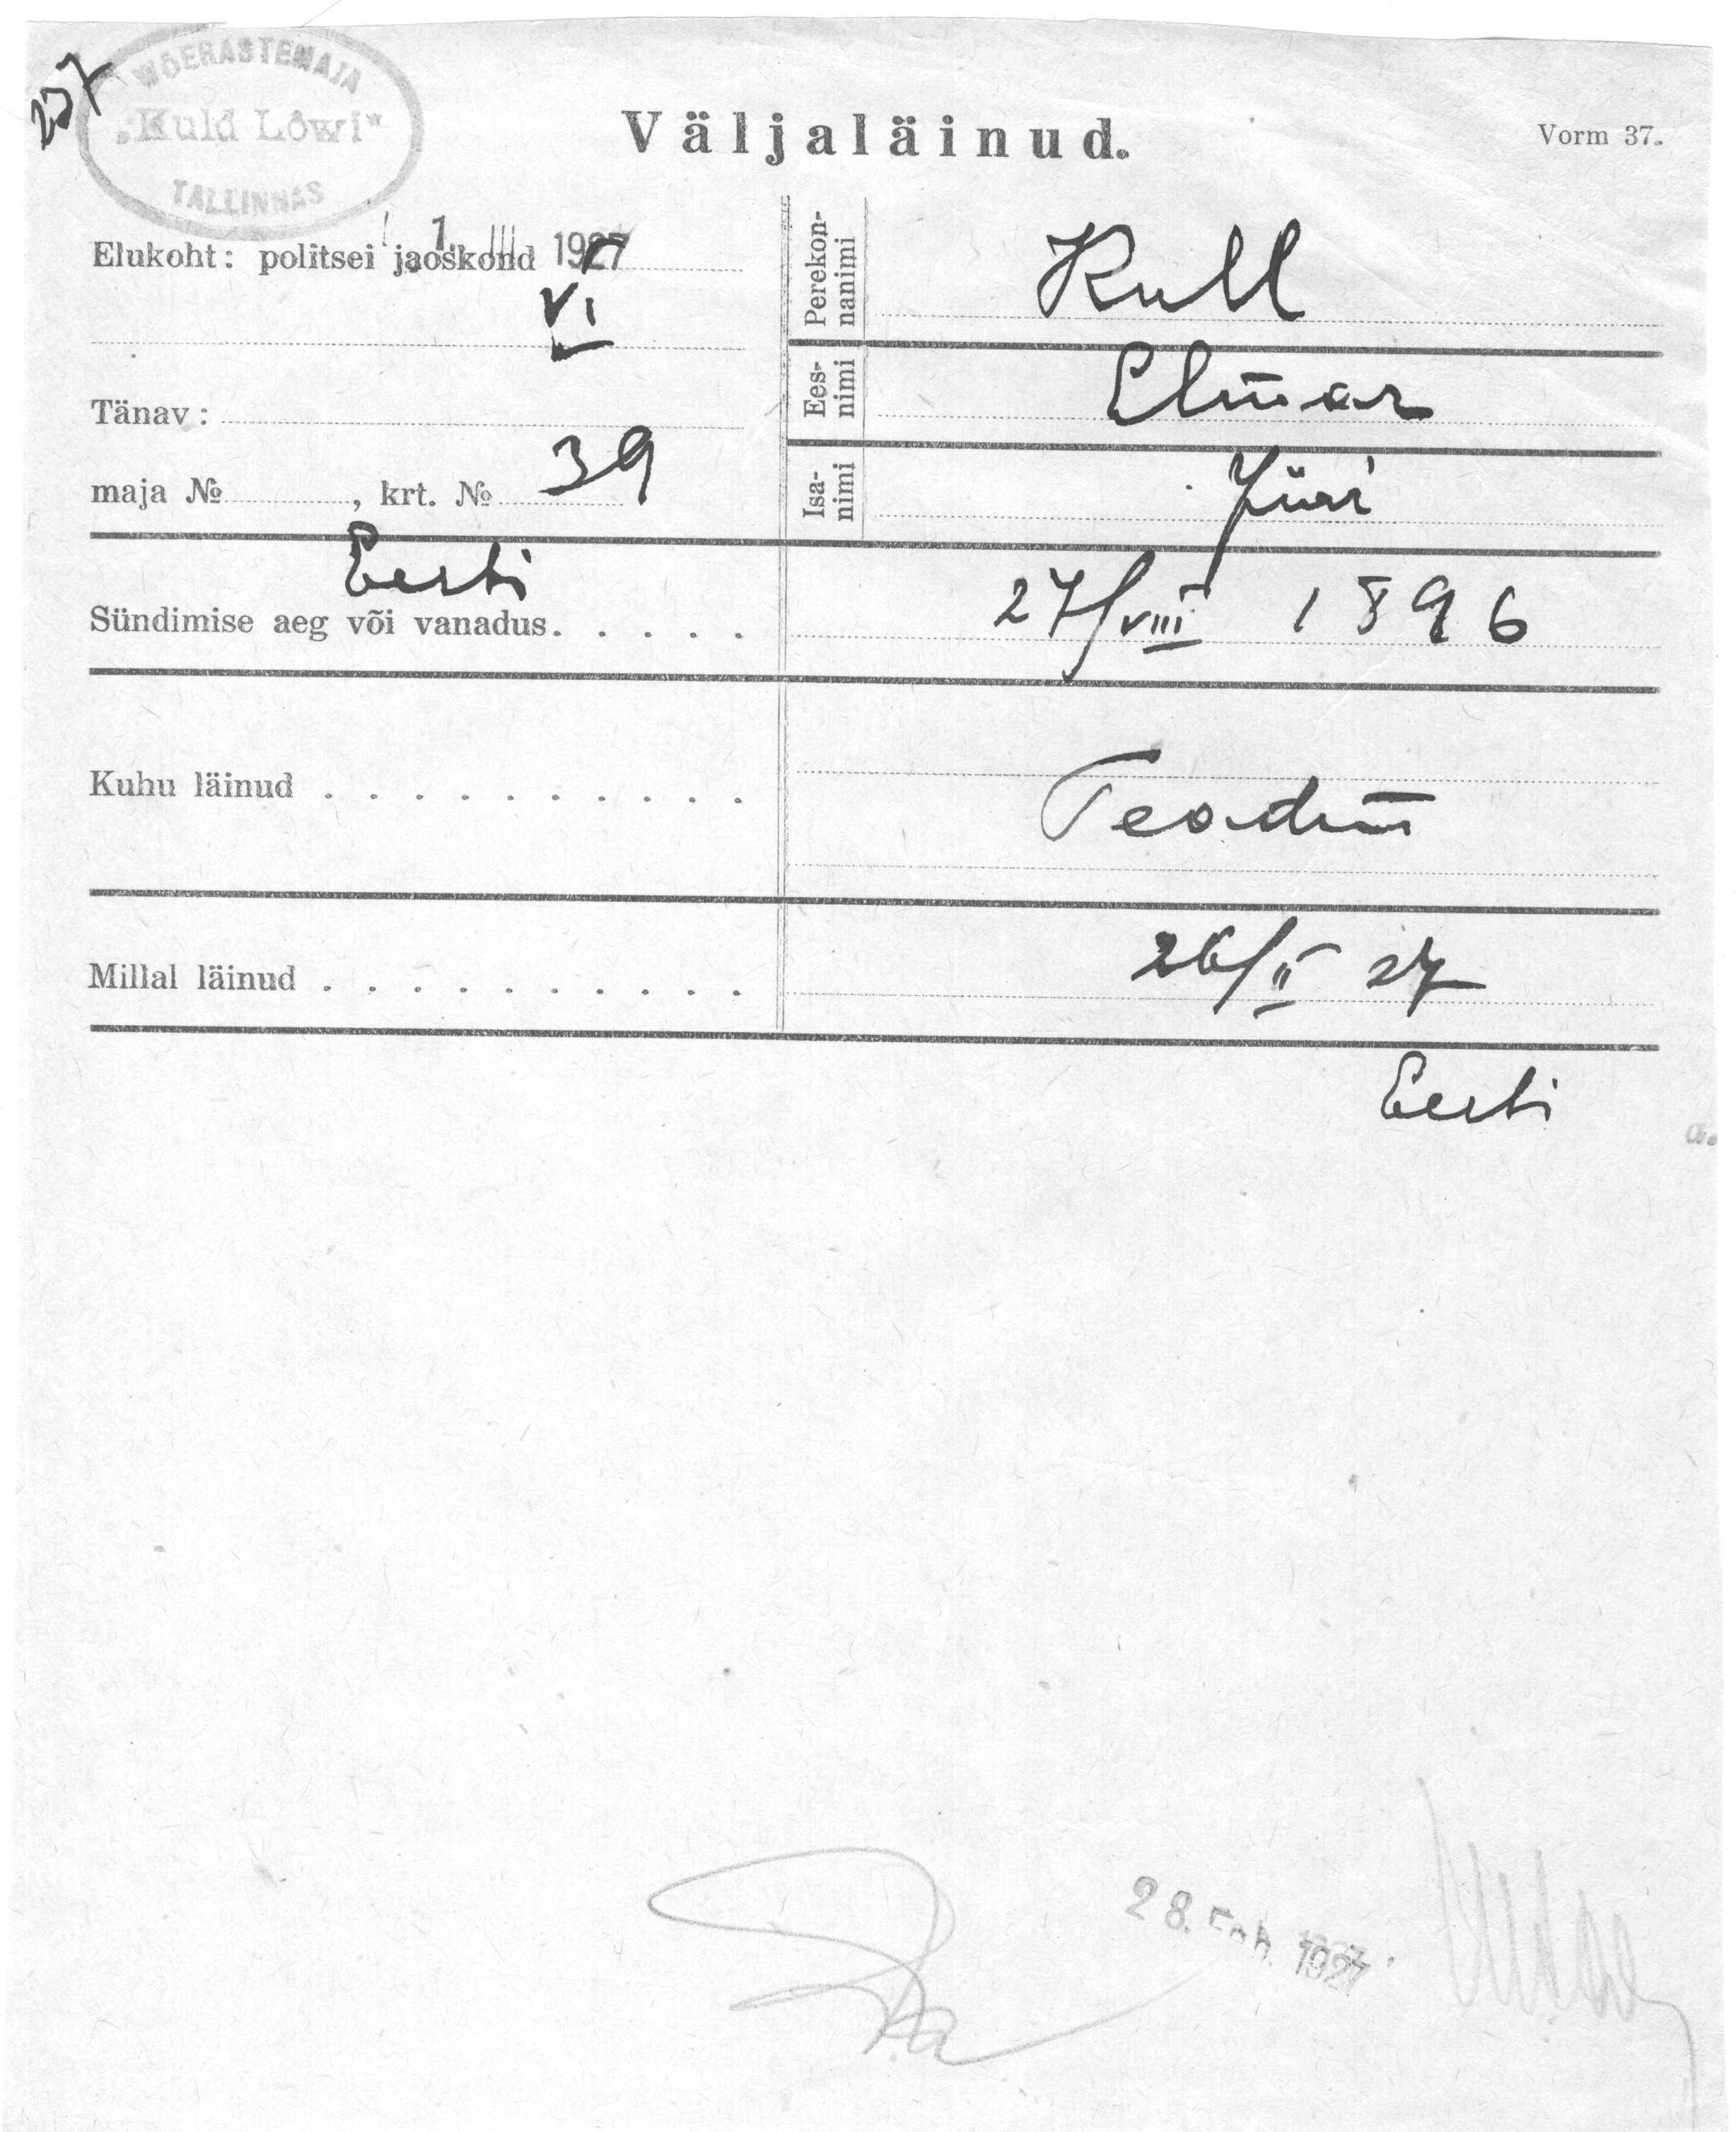 WÕERASTEMAJA
„Kuld Lõwi"
TALLINNAS
Väljaläinud.
Vorm 37.
1. III 1927
Elukoht: politsei jaoskond
VI
Tänav:
maja № , krt. № 39
Perekon-
nanimi
Kull
Ees-
nimi
Elmar
Isa-
nimi
Jüri
Eesti
Sündimise aeg või vanadus. . . . . 27/VIII 1896
Kuhu läinud . . . . . . . . . . Teadm
Millal läinud . . . . . . . . . . 26/II 27
Eesti
28. 1927